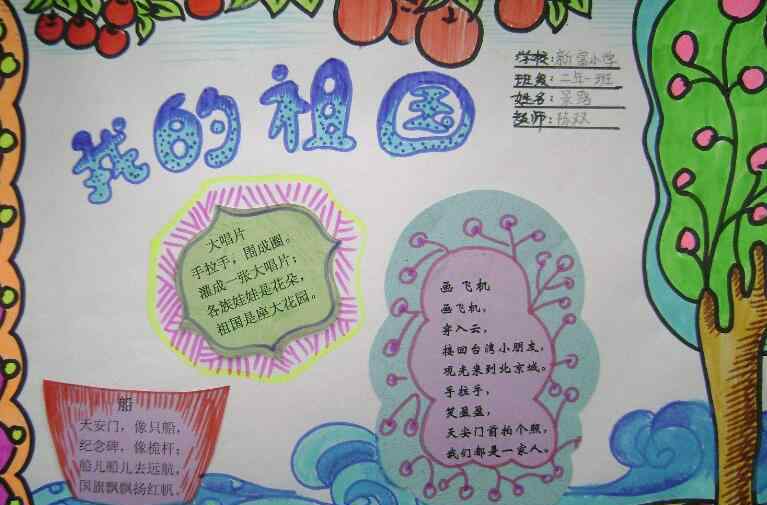 我的祖国
学校:新宫小学
班级:二年一班
姓名:景路
教师:陈双
大唱片
手拉手，围成圈。
灌成一张大唱片；
各族娃娃是花朵，
祖国是座大花园。
船
天安门，像只船，
纪念碑，像桅杆；
船儿船儿去远航，
国旗飘飘扬红帆。
画飞机
画飞机，
穿入云，
接回台湾小朋友，
观光来到北京城。
手拉手，
笑盈盈，
天安门首拍个照，
我们都是一家人。